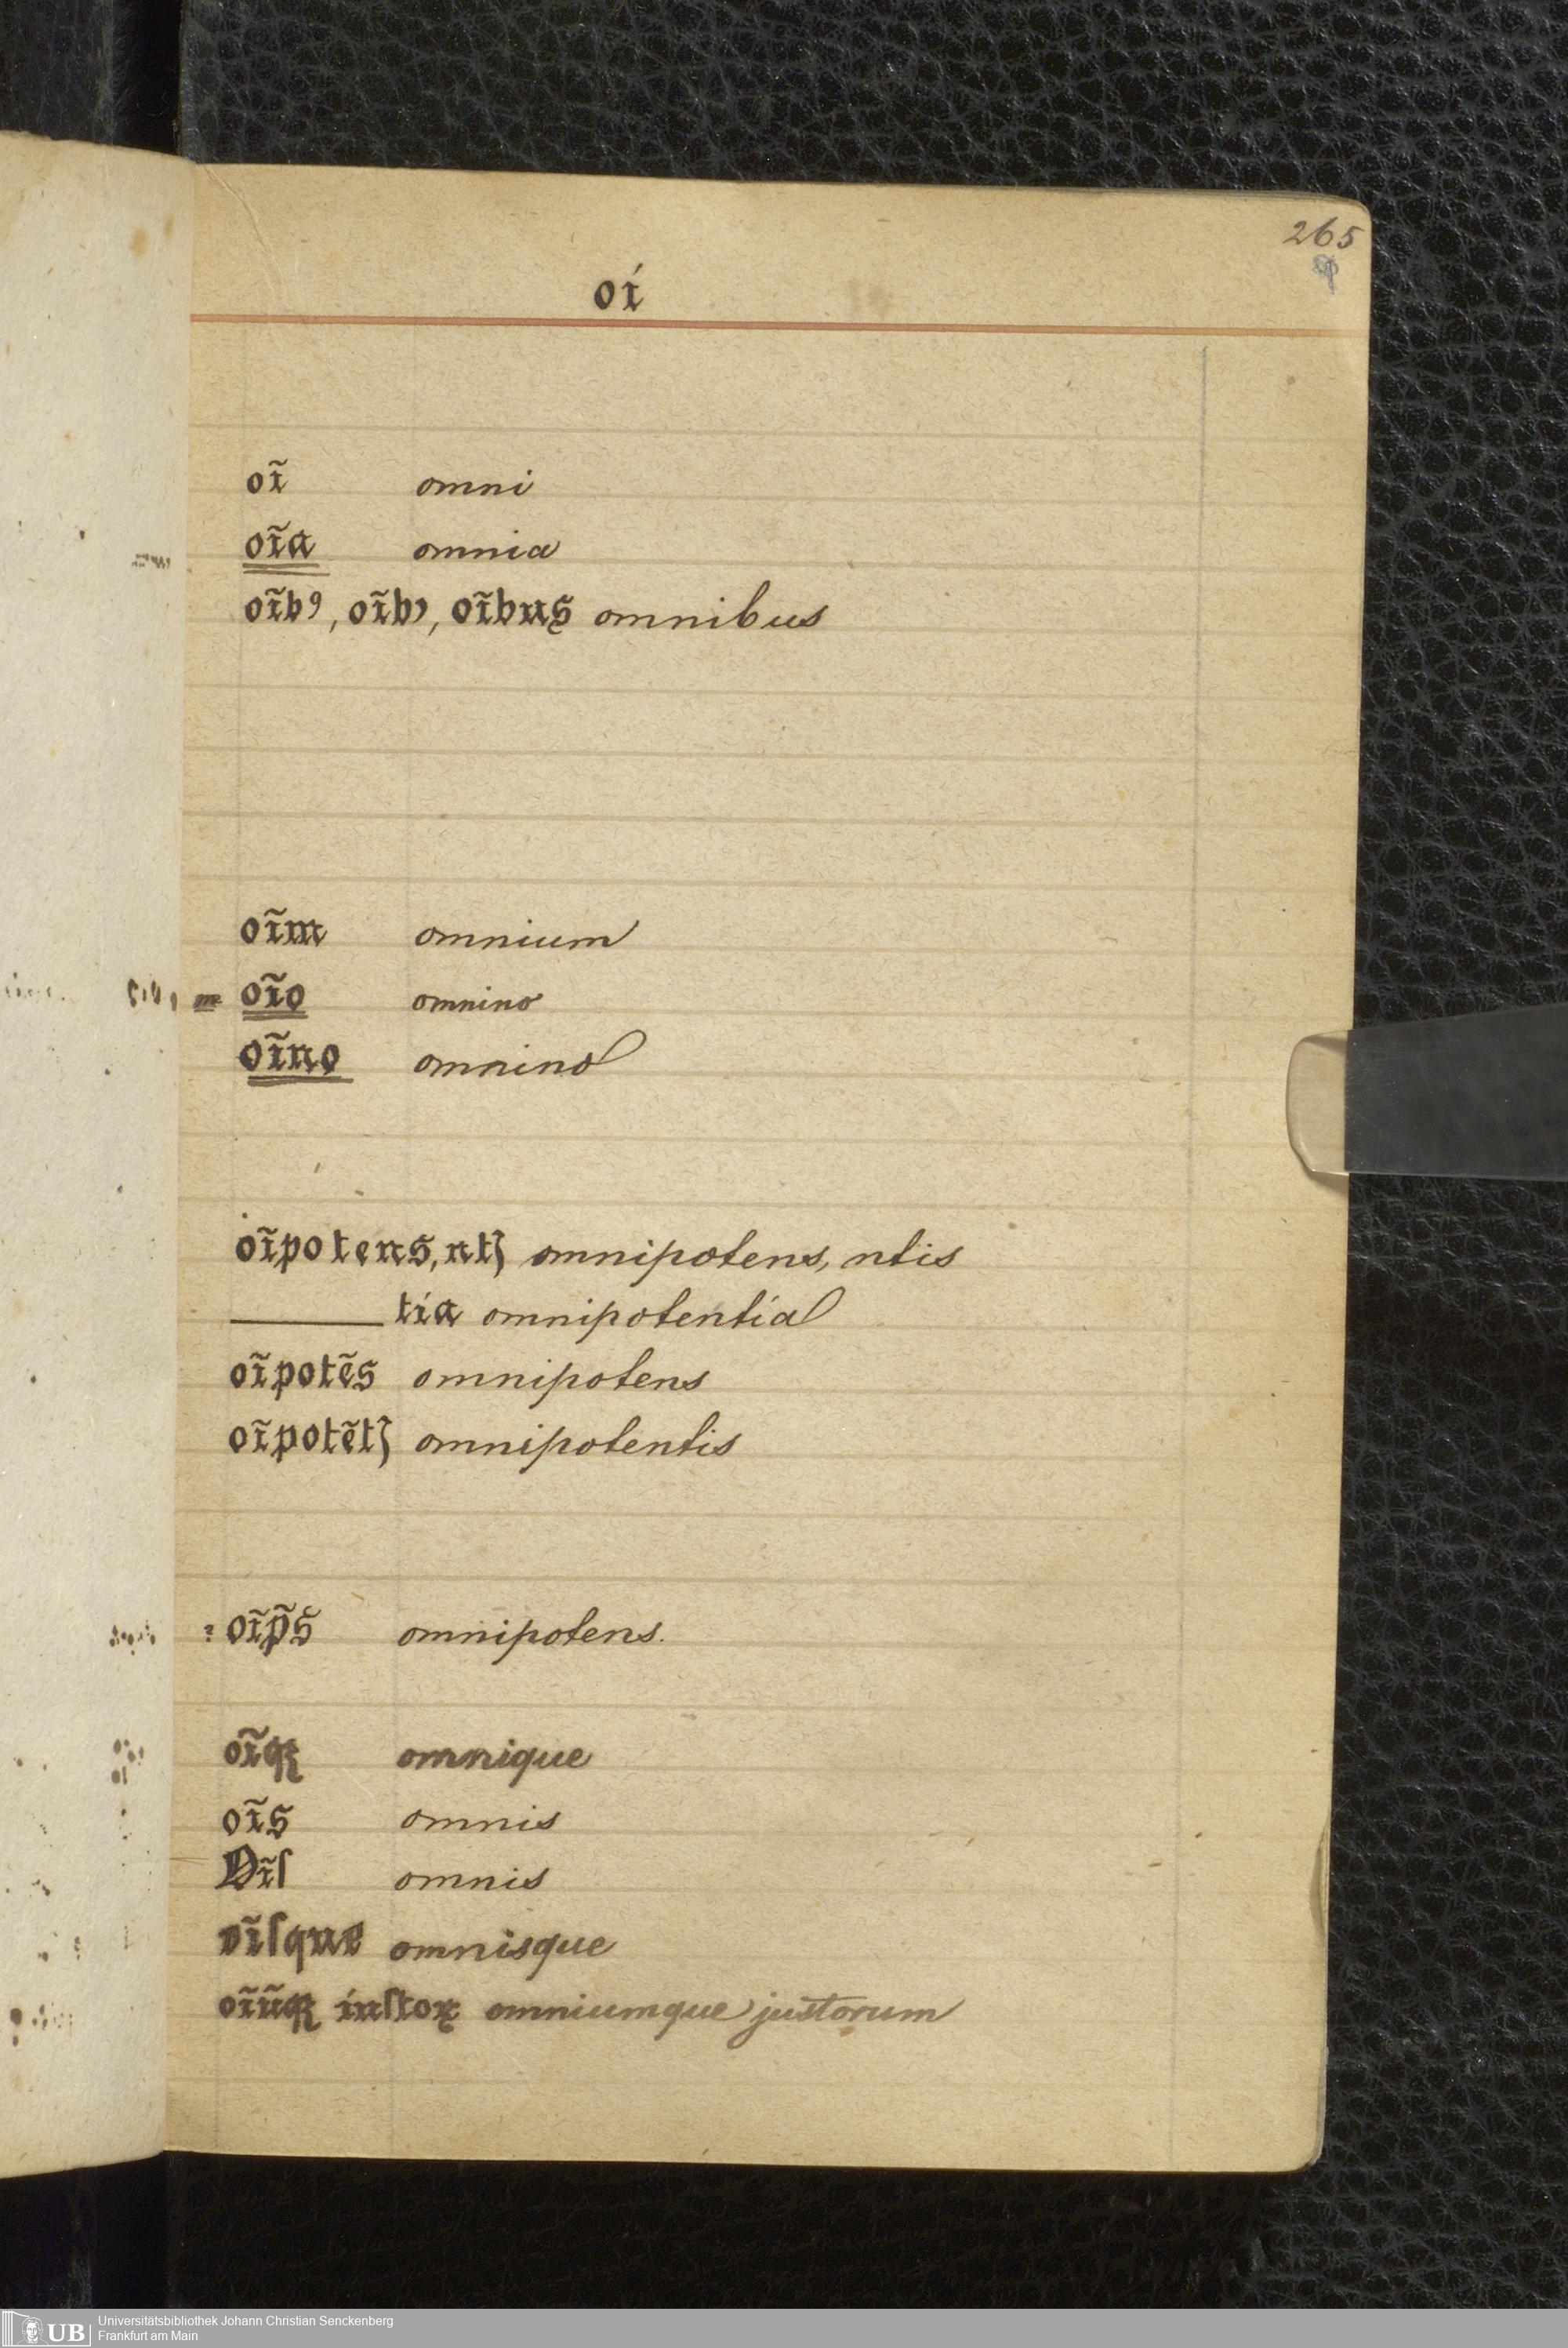 265
oí
oĩ omni
oĩa omnia
oĩbꝰ, oĩbꝫ, oĩbus omnibus
oĩm omnium
oĩo omnino
oĩno omnino
oĩpotens, ntꝭ omnipotens, ntis
tía omnipotentia
oĩpotẽs omnipotens
oĩpotẽtꝭ omnipotentis
? oĩp̃s̃ omnipotens.
oĩqꝫ omnique
oĩs omnis
Oĩſ omnis
oĩſque omnisque
oĩũqꝫ iuſtoꝝ omniumque justorum
UB Universitätsbibliothek Johann Christian Senckenberg
Frankfurt am Main